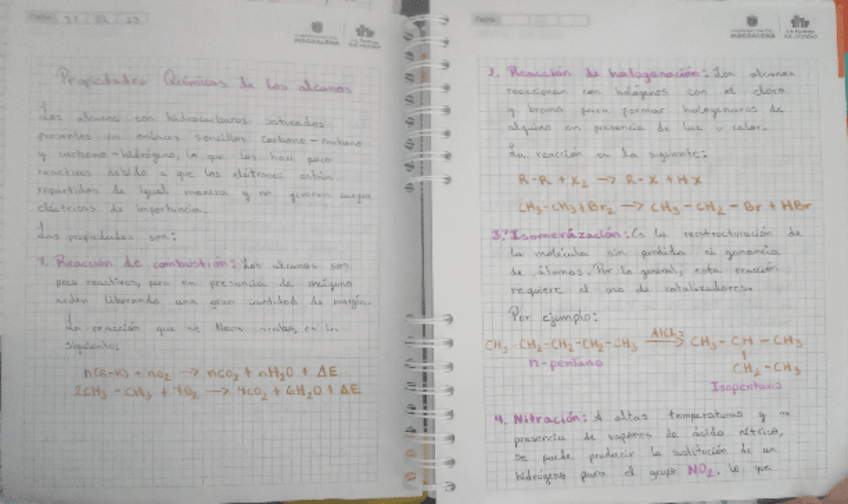 Fecha
MAGDALENA
Propiedades Químicas de los alcanos
Los alcanos son hidrocarburos saturados
presentes en enlaces sencillos carbono-carbono
y carbono-hidrógeno, lo que los hace poco
reactivos debido a que los electrones están
repartidos de igual manera y no generan cargas
eléctricas de importancia.
Las propiedades son:
1. Reacción de combustión: Los alcanos son
poco reactivos, pero en presencia de oxígeno
arden liberando una gran cantidad de energía.
La reacción que se lleva es la
siguiente:
n(R-R) + nO2 → nCO2 + nH2O + ΔE
2CH3 - CH3 + 7O2 → 4CO2 + 6H2O + ΔE
Fecha
MAGDALENA
2. Reacción de halogenación: Los alcanos
reaccionan con halógenos con el cloro
y bromo para formar halogenuros de
alquino en presencia de luz y calor.
La reacción es la siguiente:
R-R + X2 → R-X + HX
CH3-CH3 + Br2 → CH3 - CH2 - Br + HBr
3. Isomerización: Es la reestructuración de
la molécula sin perdida ni ganancia
de átomos. Por lo general, esta reacción
requiere el uso de catalizadores.
Por ejemplo:
CH3-CH2-CH2-CH2-CH3 AlCl3 → CH3 - CH - CH3
CH2-CH3
n-pentano
Isopentano
4. Nitración: A altas temperaturas y en
presencia de vapores de ácido nítrico,
se puede producir la sustitución de un
hidrógeno para el grupo NO2, lo que